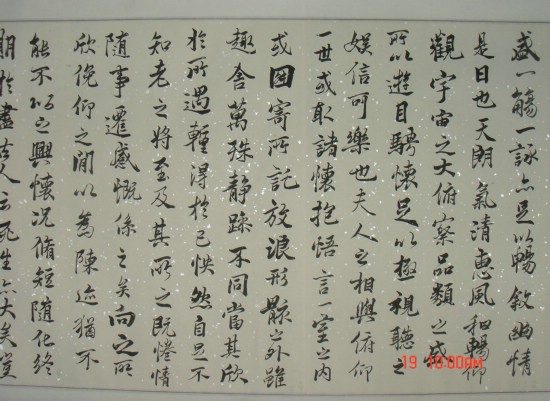 盛一觴一詠亦足以暢敘幽情
是日也天朗氣清惠風和暢仰
觀宇宙之大俯察品類之盛
所以遊目騁懷足以極視聽之
娛信可樂也夫人之相與俯仰
一世或取諸懷抱悟言一室之內
或因寄所託放浪形骸之外雖
趣舍萬殊靜躁不同當其欣
於所遇暫得於己怏然自足不
知老之將至及其所之既惓情
隨事遷感慨係之矣向之所
欣俛仰之閒以為陳迹猶不
能不以之興懷況脩短隨化終
期於盡古人云死生亦大矣豈
19